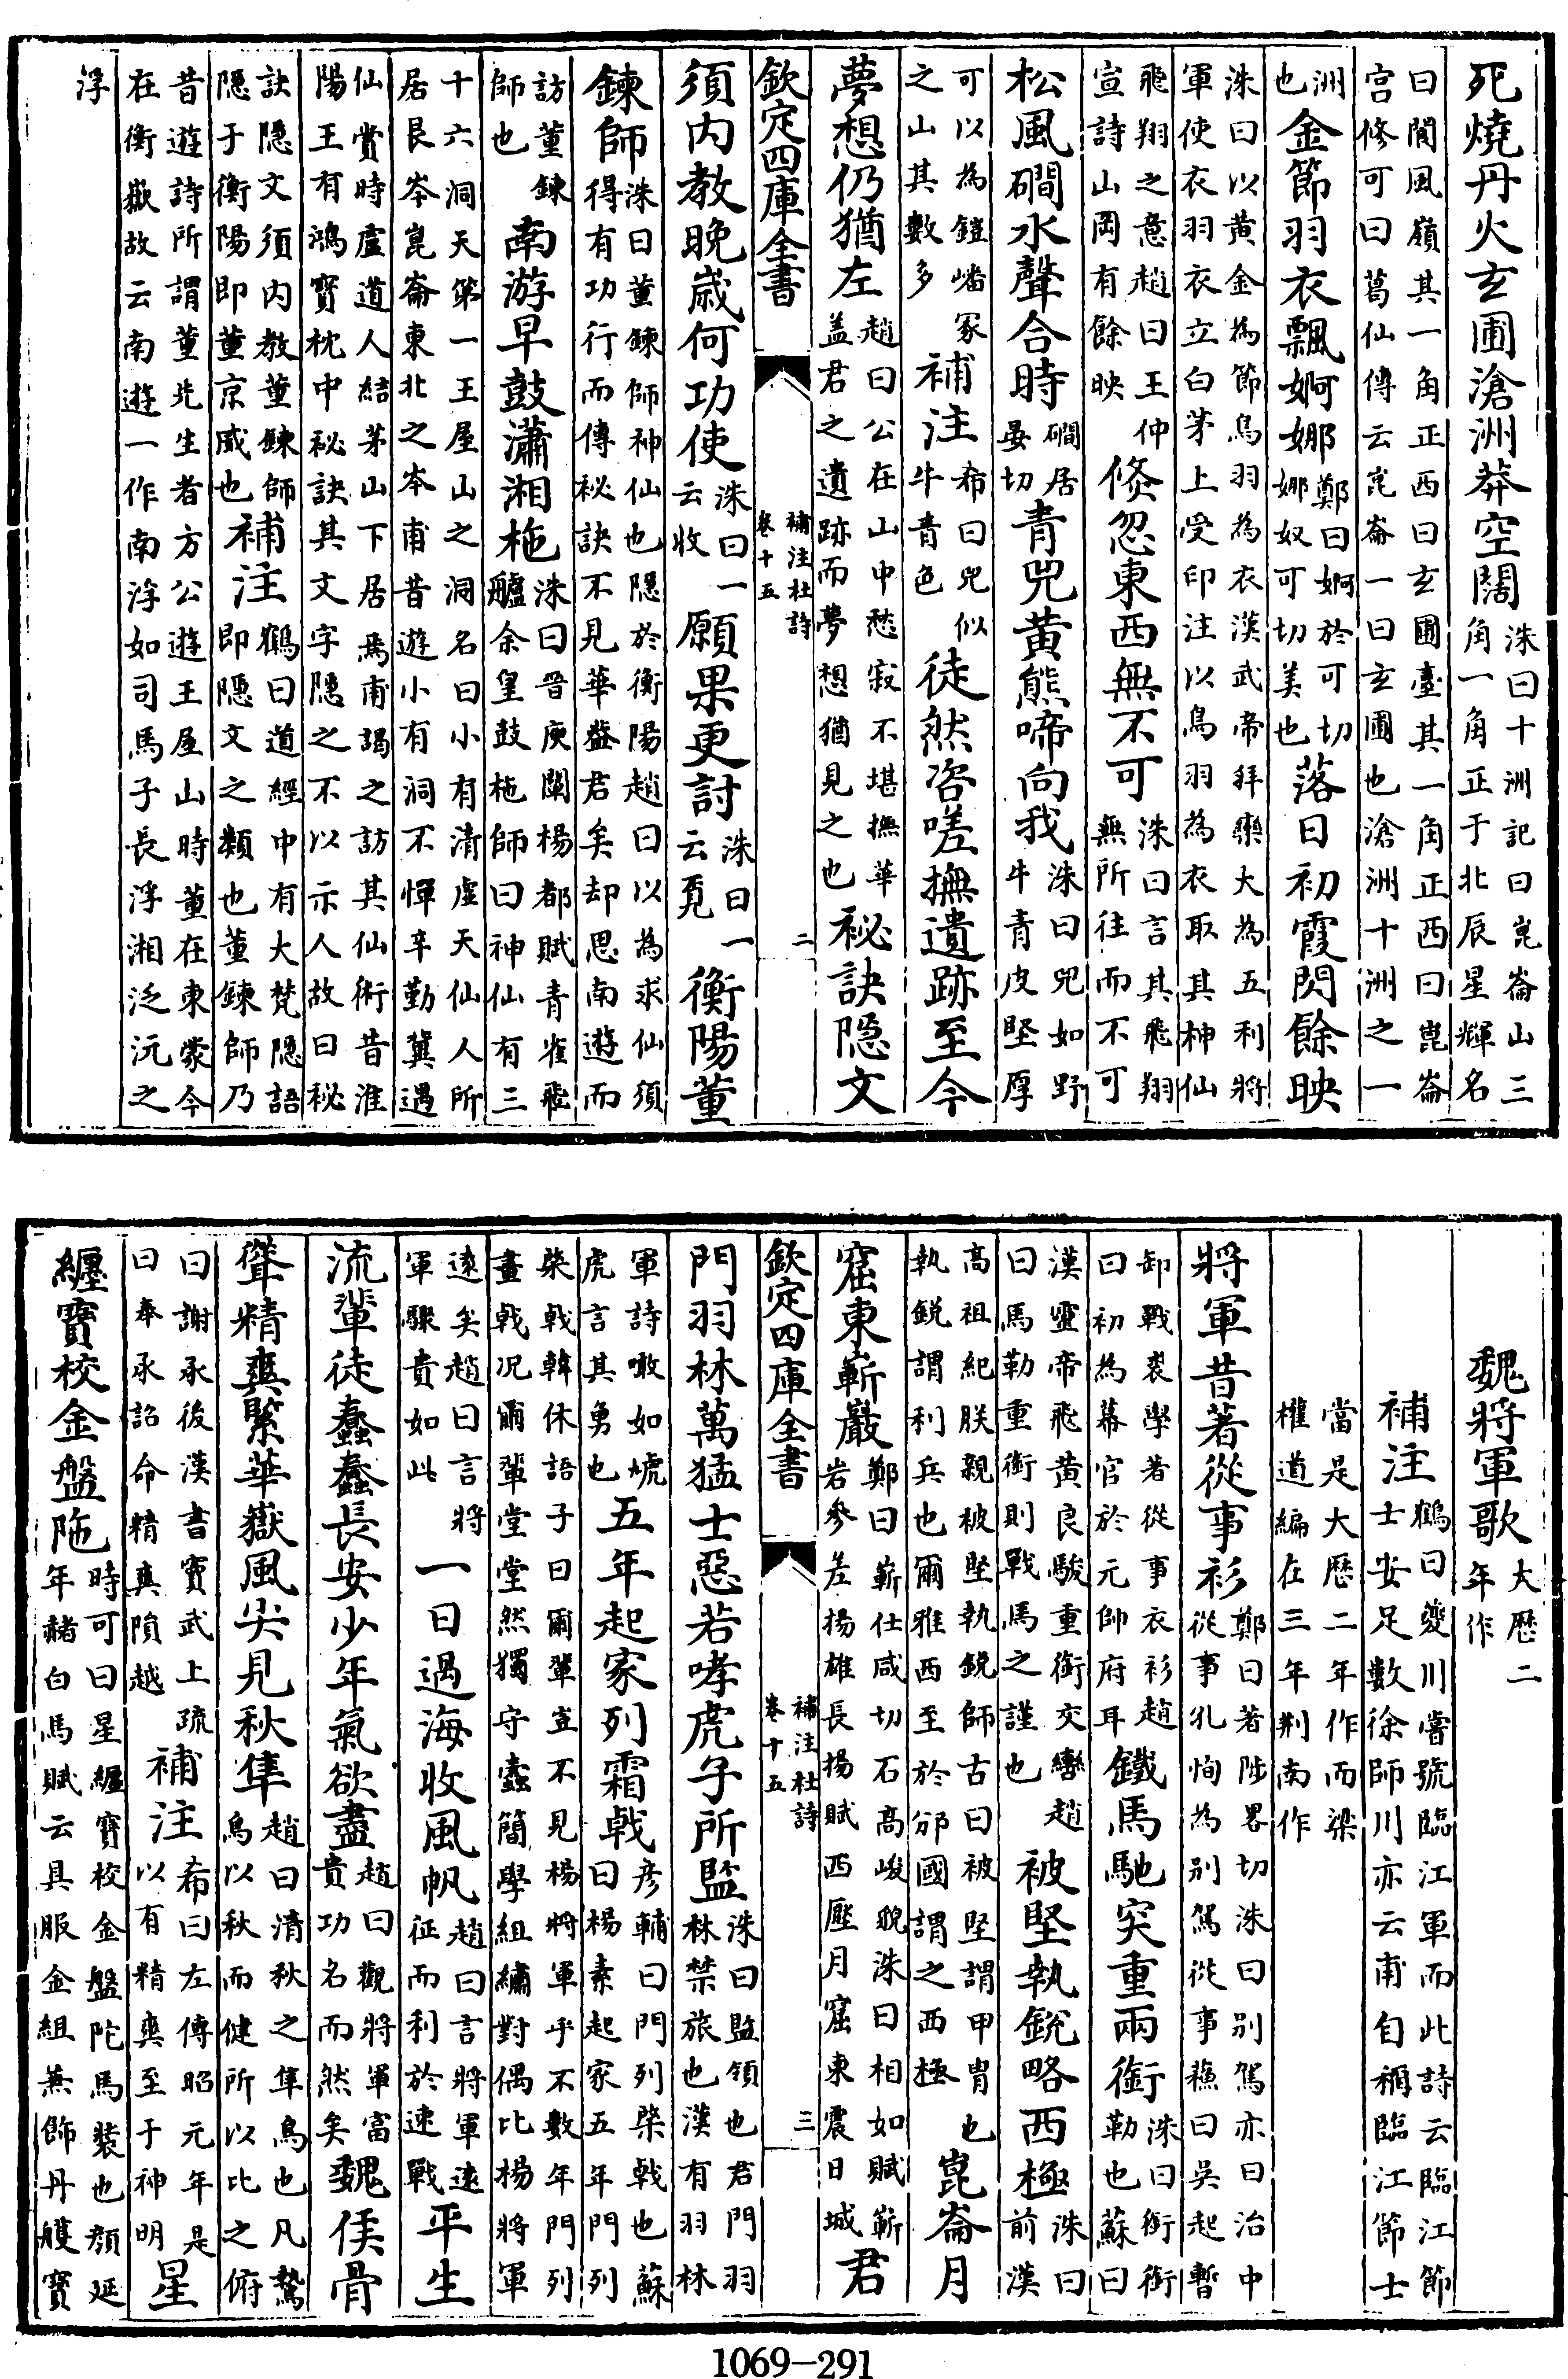 死燒丹火玄圃滄洲莽空闊洙曰十洲記曰崑崙山三角一角正于北辰星輝名
曰閬風嶺其一角正西曰玄圃臺其一角正西曰崑崙宫修可曰葛仙傳云崑崙一曰玄圃也滄洲十洲之一
洲也金節羽衣飄婀娜鄭曰婀於可切娜奴可切美也落日初霞閃餘映
洙曰以黄金為節鳥羽為衣漢武帝拜欒大為五利將軍使衣羽衣立白茅上受印注以鳥羽為衣取其神仙
飛翔之意趙曰王仲宣詩山岡有餘映倐忽東西無不可洙曰言其飛翔無所往而不可
松風磵水聲合時磵居晏切青兕黄熊啼向我洙曰兕如野牛青皮堅厚
可以為鎧嶓冢之山其數多補注希曰兕似牛青色徒然咨嗟撫遺跡至今
夢想仍猶左趙曰公在山中愁寂不堪撫華盖君之遺跡而夢想猶見之也秘訣隐文
欽定四庫全書 補注杜詩卷十五 二
須内教晚歲何功使洙曰一云收願果更討洙曰一云覓衡陽董
鍊師洙曰董鍊師神仙也隠於衡陽趙曰以為求仙須得有功行而傳秘訣不見華葢君矣却思南遊而
訪董鍊師也南游早鼓瀟湘柂洙曰晉庾闡楊都賦青雀飛艫余皇鼓柂師曰神仙有三
十六洞天第一王屋山之洞名曰小有清虚天仙人所居艮岑崑崙東北之岑甫昔遊小有洞不憚辛勤冀遇
仙賞時盧道人結茅山下居焉甫謁之訪其仙術昔淮陽王有鴻寳枕中秘訣其文字隠之不以示人故曰秘
訣隠文須内教董鍊師隠于衡陽即董京威也補注鶴曰道經中有大梵隠語即隠文之類也董鍊師乃
昔遊詩所謂董先生者方公遊王屋山時董在東蒙今在衡嶽故云南遊一作南浮如司馬子長浮湘泛沅之
浮
魏將軍歌大歴二年作
補注鶴曰夔川嘗號臨江軍而此詩云臨江節士安足數徐師川亦云甫自稱臨江節士
當是大歴二年作而梁權道編在三年荆南作
將軍昔著從事衫鄭曰著陟畧切洙曰别駕亦曰治中從事孔恂為别駕從事蘓曰吳起暫
卸戰裘學著從事衣衫趙曰初為幕官於元帥府耳鐵馬馳突重兩銜洙曰銜銜勒也蘇曰
漢靈帝飛黄良駿重銜交轡趙曰馬勒重銜則戰馬之謹也被堅執銳略西極洙曰前漢
高祖紀朕親被堅執銳師古曰被堅謂甲胄也執銳謂利兵也爾雅西至於邠國謂之西極崑崙月
窟東嶄巖鄭曰嶄仕咸切石高峻貌洙曰相如賦嶄岩參差揚雄長揚賦西厭月窟東震日域君
欽定四庫全書 補注杜詩卷十五 三
門羽林萬猛士惡若哮虎子所監洙曰監領也君門羽林禁旅也漢有羽林
軍詩噉如虓虎言其勇也五年起家列霜戟彦輔曰門列棨戟也蘇曰楊素起家五年門列
棨戟韓休語子曰爾輩豈不見楊將軍乎不數年門列畫戟况爾輩堂堂然獨守蠹簡學組繡對偶比楊將軍
逺矣趙曰言將軍驟貴如此一日過海收風帆趙曰言將軍逺征而利於速戰平生
流輩徒蠢蠢長安少年氣欲盡趙曰觀將軍富貴功名而然矣魏侯骨
聳精爽緊華嶽風尖見秋隼趙曰清秋之隼鳥也凡鷙鳥以秋而健所以比之俯
曰謝承後漢書竇武上疏曰奉承詔命精爽隕越補注希曰左傳昭元年是以有精爽至于神明星
纒寳校金盤陁時可曰星纒寳校金盤陀馬裝也顔延年赭白馬賦云具服金組兼飾丹雘寳
1069-291